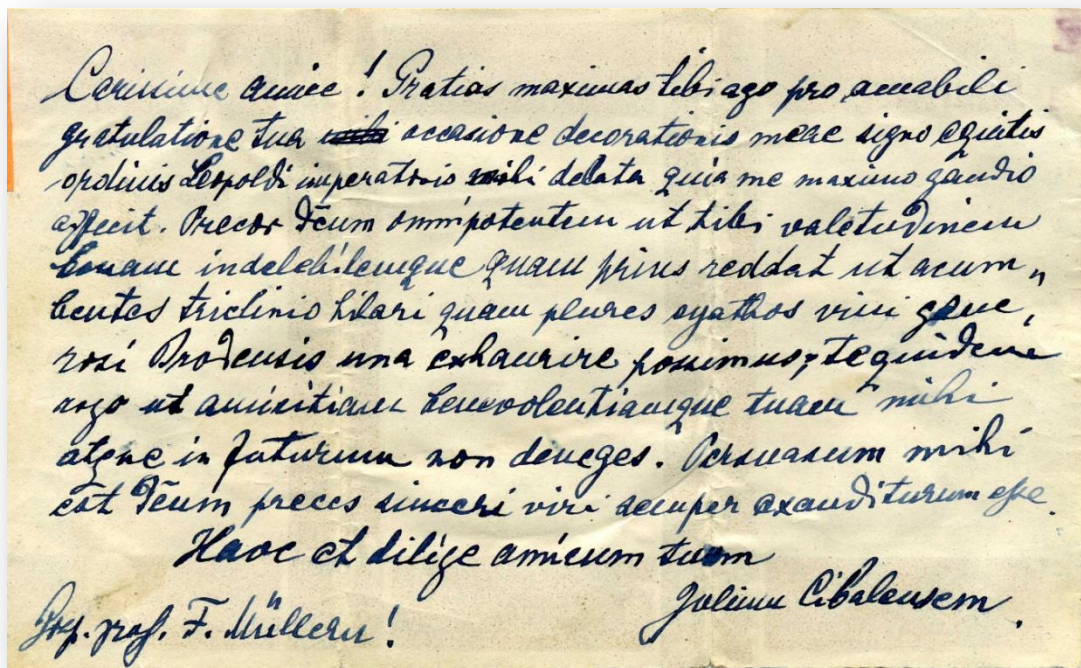 Carissime amice! Gratias maximas tibi ago pro amabili
gratulatione tua mihi occasione decorationis meae signo equitis
ordinis Leopoldi imperatoris mihi delata quia me maximo gaudio
affecit. Precor Deum omnipotentem ut tibi valetudinem
bonam indelebilemque quam prius reddat ut acum„
bentes triclinio hilari quam plures cyathos vini gene,
rosi Brodensis una exhaurire possimus; te quidem
rogo ut amicitiam benevolentiamque tuam mihi
atque in futurum non deneges. Persuasum mihi
est Deum preces sinceri viri semper exauditurum esse.
Have et dilige amicum tuum
Julium Cibalensem.
Gosp. prof. F. Mülleru!